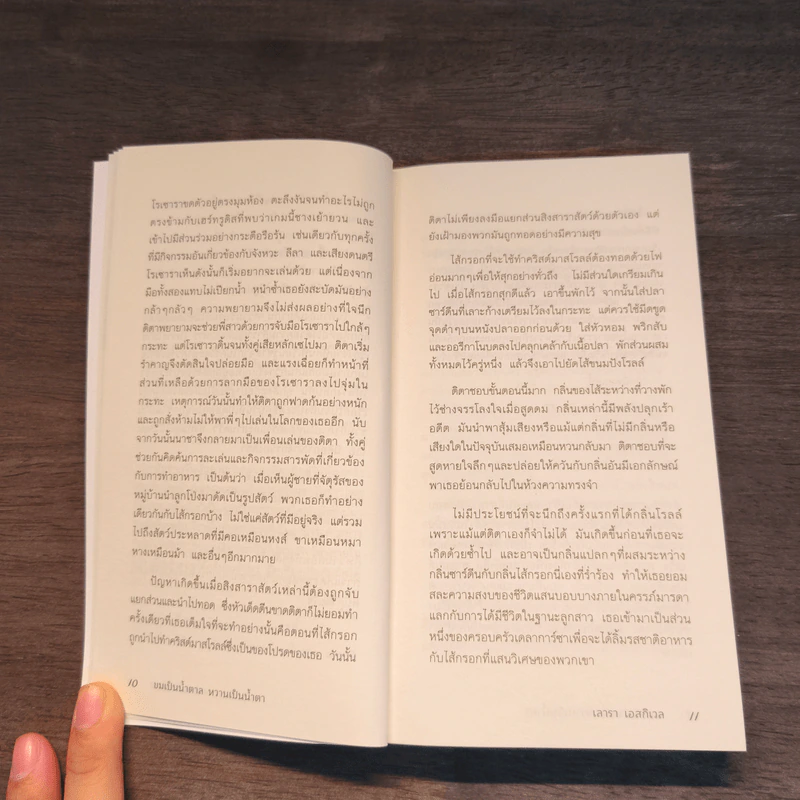 โรเซาราขดตัวอยู่ตรงมุมห้อง ตะลึงงันจนทำอะไรไม่ถูก
ตรงข้ามกับเฮร์ทรูดิสที่พบว่าเกมนี้ช่างเย้ายวน และ
เข้าไปมีส่วนร่วมอย่างกระตือรือร้น เช่นเดียวกับทุกครั้ง
ที่มีกิจกรรมอันเกี่ยวข้องกับจังหวะ ลีลา และเสียงดนตรี
โรเซาราเห็นดังนั้นก็เริ่มอยากจะเล่นด้วย แต่เนื่องจาก
มือทั้งสองแทบไม่เปียกน้ำ หน้าซ้ำเธอยังสะบัดมันอย่าง
กล้าๆกลัวๆ ความพยายามจึงไม่ส่งผลอย่างที่ใจนึก
ติตาพยายามจะช่วยพี่สาวด้วยการจับมือโรเซาราไปใกล้ๆ
กระทะ แต่โรเซาราดิ้นจนทั้งคู่เสียหลักเซไปมา ติตาเริ่ม
รำคาญจึงตัดสินใจปล่อยมือ และแรงเฉื่อยก็ทำหน้าที่
ส่วนที่เหลือด้วยการลากมือของโรเซาราลงไปจุ่มใน
กระทะ เหตุการณ์วันนั้นทำให้ติตาถูกฟาดก้นอย่างหนัก
และถูกสั่งห้ามไม่ให้พาพี่ๆไปเล่นในโลกของเธออีก นับ
จากวันนั้นนาชาจึงกลายมาเป็นเพื่อนเล่นของติตา ทั้งคู่
ช่วยกันคิดค้นการละเล่นและกิจกรรมสารพัดที่เกี่ยวข้อง
กับการทำอาหาร เป็นต้นว่า เมื่อเห็นผู้ชายที่จัตุรัสของ
หมู่บ้านนำลูกโป่งมาดัดเป็นรูปสัตว์ พวกเธอก็ทำอย่าง
เดียวกันกับไส้กรอกบ้าง ไม่ใช่แค่สัตว์ที่มีอยู่จริง แต่รวม
ไปถึงสัตว์ประหลาดที่มีคอเหมือนหงส์ ขาเหมือนหมา
หางเหมือนม้า และอื่นๆอีกมากมาย
ปัญหาเกิดขึ้นเมื่อสิงสาราสัตว์เหล่านี้ต้องถูกจับ
แยกส่วนและนำไปทอด ซึ่งหัวเด็ดตีนขาดติตาก็ไม่ยอมทำ
ครั้งเดียวที่เธอเต็มใจที่จะทำอย่างนั้นคือตอนที่ไส้กรอก
ถูกนำไปทำคริสต์มาสโรลล์ซึ่งเป็นของโปรดของเธอ วันนั้น
10 ขมเป็นน้ำตาล หวานเป็นน้ำตา
ติตาไม่เพียงลงมือแยกส่วนสิงสาราสัตว์ด้วยตัวเอง แต่
ยังเฝ้ามองพวกมันถูกทอดอย่างมีความสุข
ไส้กรอกที่จะใช้ทำคริสต์มาสโรลล์ต้องทอดด้วยไฟ
อ่อนมากๆเพื่อให้สุกอย่างทั่วถึง ไม่มีส่วนใดเกรียมเกิน
ไป เมื่อไส้กรอกสุกดีแล้ว เอาขึ้นพักไว้ จากนั้นใส่ปลา
ซาร์ดีนที่เลาะก้างเตรียมไว้ลงในกระทะ แต่ควรใช้มีดขูด
จุดดำๆบนหนังปลาออกก่อนด้วย ใส่หัวหอม พริกสับ
และออริกาโนบดลงไปคลุกเคล้ากับเนื้อปลา พักส่วนผสม
ทั้งหมดไว้ครู่หนึ่ง แล้วจึงเอาไปยัดไส้ขนมปังโรลล์
ติตาชอบขั้นตอนนี้มาก กลิ่นของไส้ระหว่างที่วางพัก
ไว้ช่างจรรโลงใจเมื่อสูดดม กลิ่นเหล่านี้มีพลังปลุกเร้า
อดีต มันนำพาสุ้มเสียงหรือแม้แต่กลิ่นที่ไม่มีกลิ่นหรือ
เสียงใดในปัจจุบันเสมอเหมือนหวนกลับมา ติตาชอบที่จะ
สูดหายใจลึกๆและปล่อยให้ควันกับกลิ่นอันมีเอกลักษณ์
พาเธอย้อนกลับไปในห้วงความทรงจำ
ไม่มีประโยชน์ที่จะนึกถึงครั้งแรกที่ได้กลิ่นโรลล์
เพราะแม้แต่ติตาเองก็จำไม่ได้ มันเกิดขึ้นก่อนที่เธอจะ
เกิดด้วยซ้ำไป และอาจเป็นกลิ่นแปลกๆที่ผสมระหว่าง
กลิ่นซาร์ดีนกับกลิ่นไส้กรอกนี่เองที่ร่ำร้อง ทำให้เธอยอม
สละความสงบของชีวิตแสนบอบบางภายในครรภ์มารดา
แลกกับการได้มีชีวิตในฐานะลูกสาว เธอเข้ามาเป็นส่วน
หนึ่งของครอบครัวเดลาการ์ซาเพื่อจะได้ลิ้มรสชาติอาหาร
กับไส้กรอกที่แสนวิเศษของพวกเขา
เลารา เอสกิเวล 11